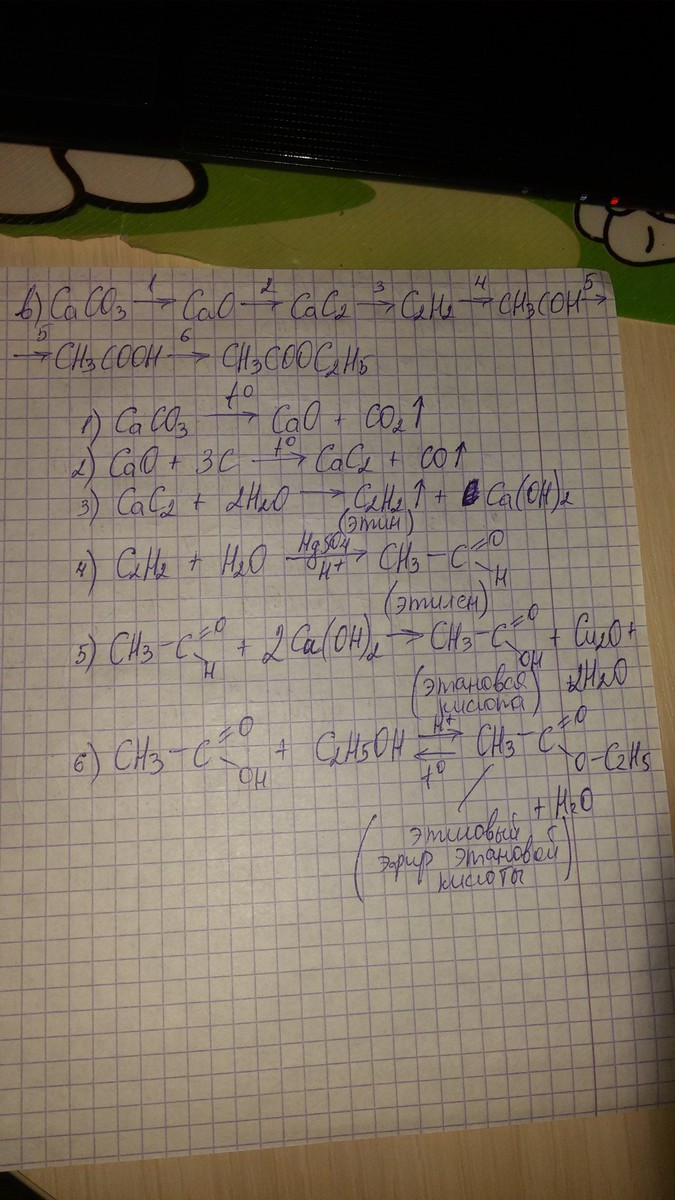 в) CaCO3 →1 CaO →2 CaC2 →3 C2H2 →4 CH3COH →5
→5 CH3COOH →6 CH3COOC2H5
1) CaCO3 →t° CaO + CO2↑
2) CaO + 3C →t° CaC2 + CO↑
3) CaC2 + 2H2O → C2H2↑ + Ca(OH)2
(этин)
4) C2H2 + H2O →HgSO4 H+ CH3 — C =O H
(этилен)
5) CH3 — C =O H + 2Ca(OH)2 → CH3 — C =O OH + Cu2O +
2H2O
(этановая
кислота)
6) CH3 — C =O OH + C2H5OH ⇄ H+ t° CH3 — C =O O—C2H5
+ H2O
(этиловый
эфир этановой
кислоты)